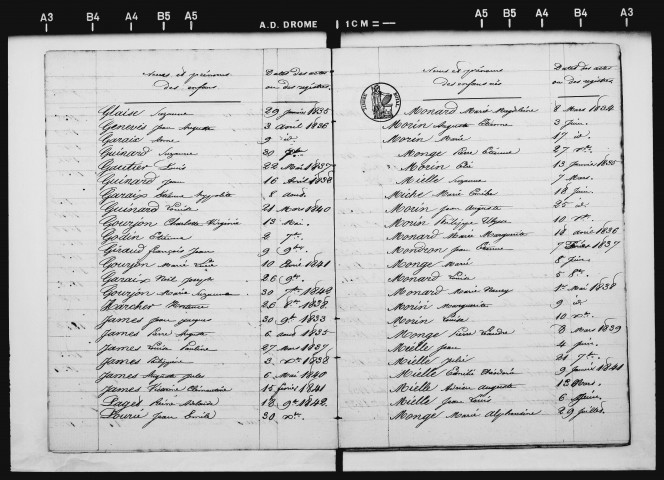 A3 B4 A4 B5 A5 A.D. DROME 1 CM A5 B5 A4 B4 A3
Noms et prénoms des enfans
Dates des actes ou des registres
Glaise Suzanne 29 Janvier 1835
Genevès Jean Auguste 3 avril 1836
Garaix Anne 9 id
Guinard Suzanne 30
Gautier Louis 22 Mai 1837
Guinard Jean 16 Avril 1838
Garaix Etienne Hyppolite 8 aout
Guinard Louise 21 Mars 1840
Gourjon Charlotte Virginie 13 Mai
Godin Etienne 2 7bre
Giraud François Jean 9 9bre
Gourjon Marie 10 Avril 1841
Garaix Noel Joseph 26 9bre
Gourjon Marie Suzanne 30 7bre 1842
Karcher 26 8bre 1838
James Jean Jacques 30 9bre 1833
James Pierre Auguste 6 aout 1835
James Louise Pauline 27 Mars 1837
James Philippine 3 Xbre 1838
James Auguste Jules 6 Mai 1840
James Victorine Clémentine 15 février 1841
Pagès Reine Adélaide 12 9bre 1842
Jean Emile 30 Xbre
Noms et prénoms des enfans nés
Dates des actes ou des registres
Monard Marie Magdeleine 8 Mars 1834
Morin Auguste Etienne 3 Juin
Morin Marie 17 id
Monge Pierre Etienne 27 Xbre
Morin 13 Janvier 1835
Mielle Suzanne 7 Mars
Miche Marie 18 Juin
Morin Jean Auguste 25 id
Morin Philippe Ulysse 10 Xbre
Monard Marie Marguerite 18 avril 1836
Jean Etienne 7 février 1837
Monge Marie 8 Juin
Monard Louise 5 8bre
Monard Marie Nancy 1er Mai 1838
Morin Marguerite 9 id
Morin Louise 10 Xbre
Monge Pierre 8 Mars 1839
Mielle Jean 4 Juin
Mielle Julie 21 7bre
Mielle Camille Théodore 9 Janvier 1841
Mielle Adrien Auguste 13 Mars
Mielle Jean Louis 6
Monge Marie Alphonsine 29 Juillet